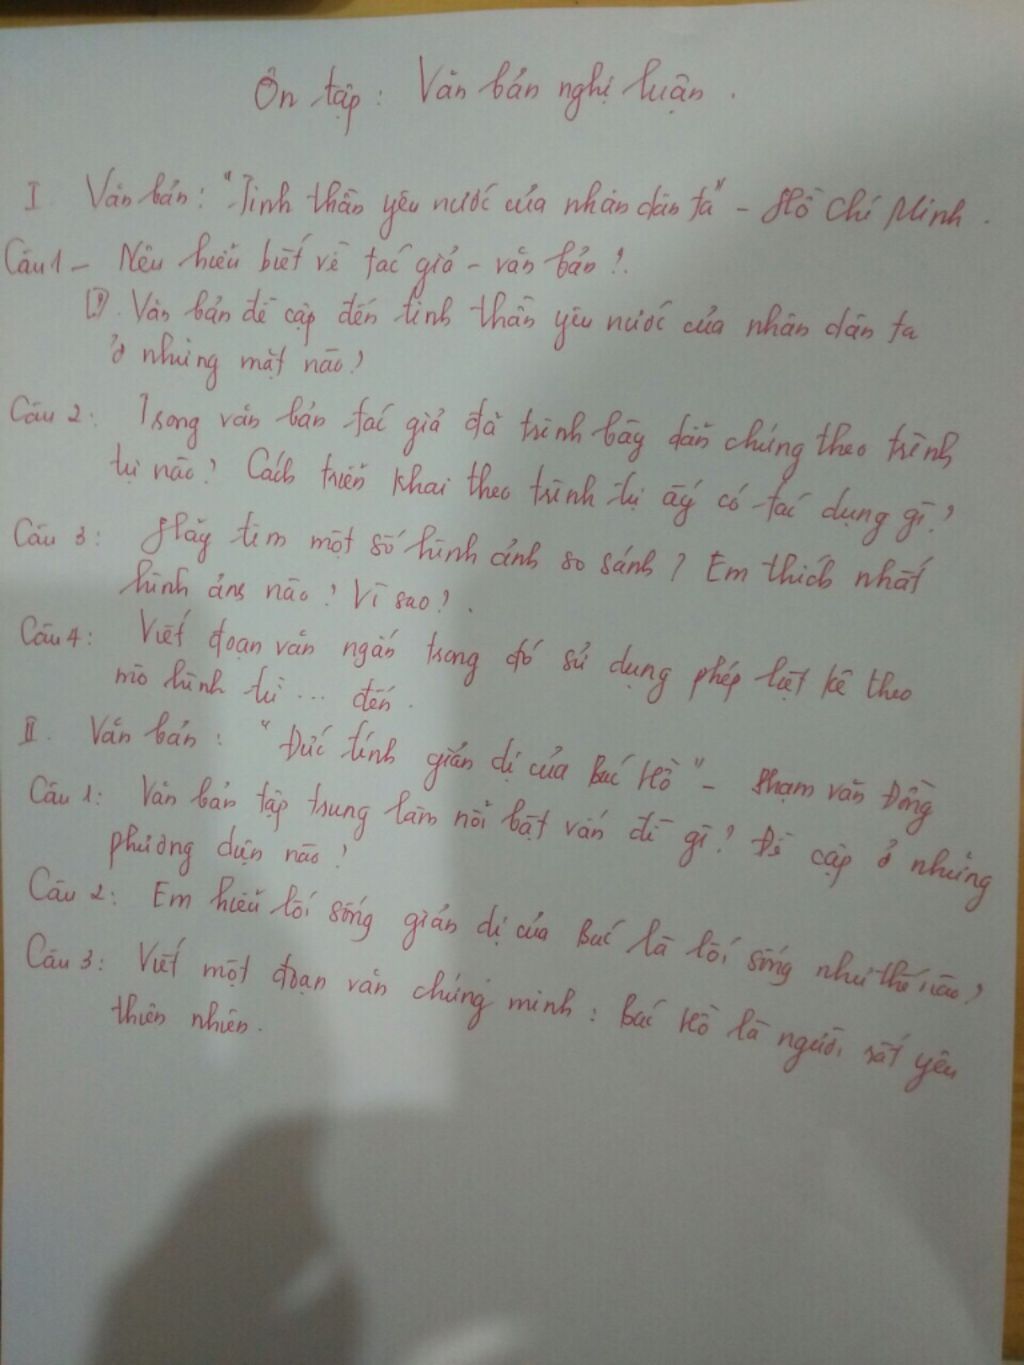 Ôn tập: Văn bản nghị luận.
I Văn bản: "Tinh thần yêu nước của nhân dân ta" - Hồ Chí Minh.
Câu 1 - Nêu hiểu biết về tác giả - văn bản?.
[?]. Văn bản đề cập đến tinh thần yêu nước của nhân dân ta
ở những mặt nào?
Câu 2: Trong văn bản tác giả đã trình bày dẫn chứng theo trình
tự nào? Cách triển khai theo trình tự ấy có tác dụng gì?
Câu 3: Hãy tìm một số hình ảnh so sánh? Em thích nhất
hình ảnh nào? Vì sao?.
Câu 4: Viết đoạn văn ngắn trong đó sử dụng phép liệt kê theo
mô hình từ ... đến.
II. Văn bản: "Đức tính giản dị của Bác Hồ" - Phạm Văn Đồng
Câu 1: Văn bản tập trung làm nổi bật vấn đề gì? Đề cập ở những
phương diện nào?
Câu 2: Em hiểu lối sống giản dị của Bác là lối sống như thế nào?
Câu 3: Viết một đoạn văn chứng minh: Bác Hồ là người rất yêu
thiên nhiên.